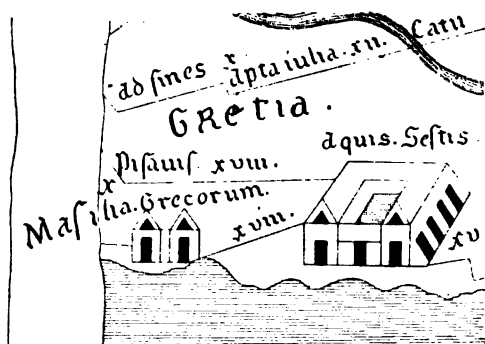 ad fines x apta iulia. xii. Catu
GRETIA.
aquis. Sestis
x Pisavis xviii.
Masilia. Grecorum.
xviii.
xv